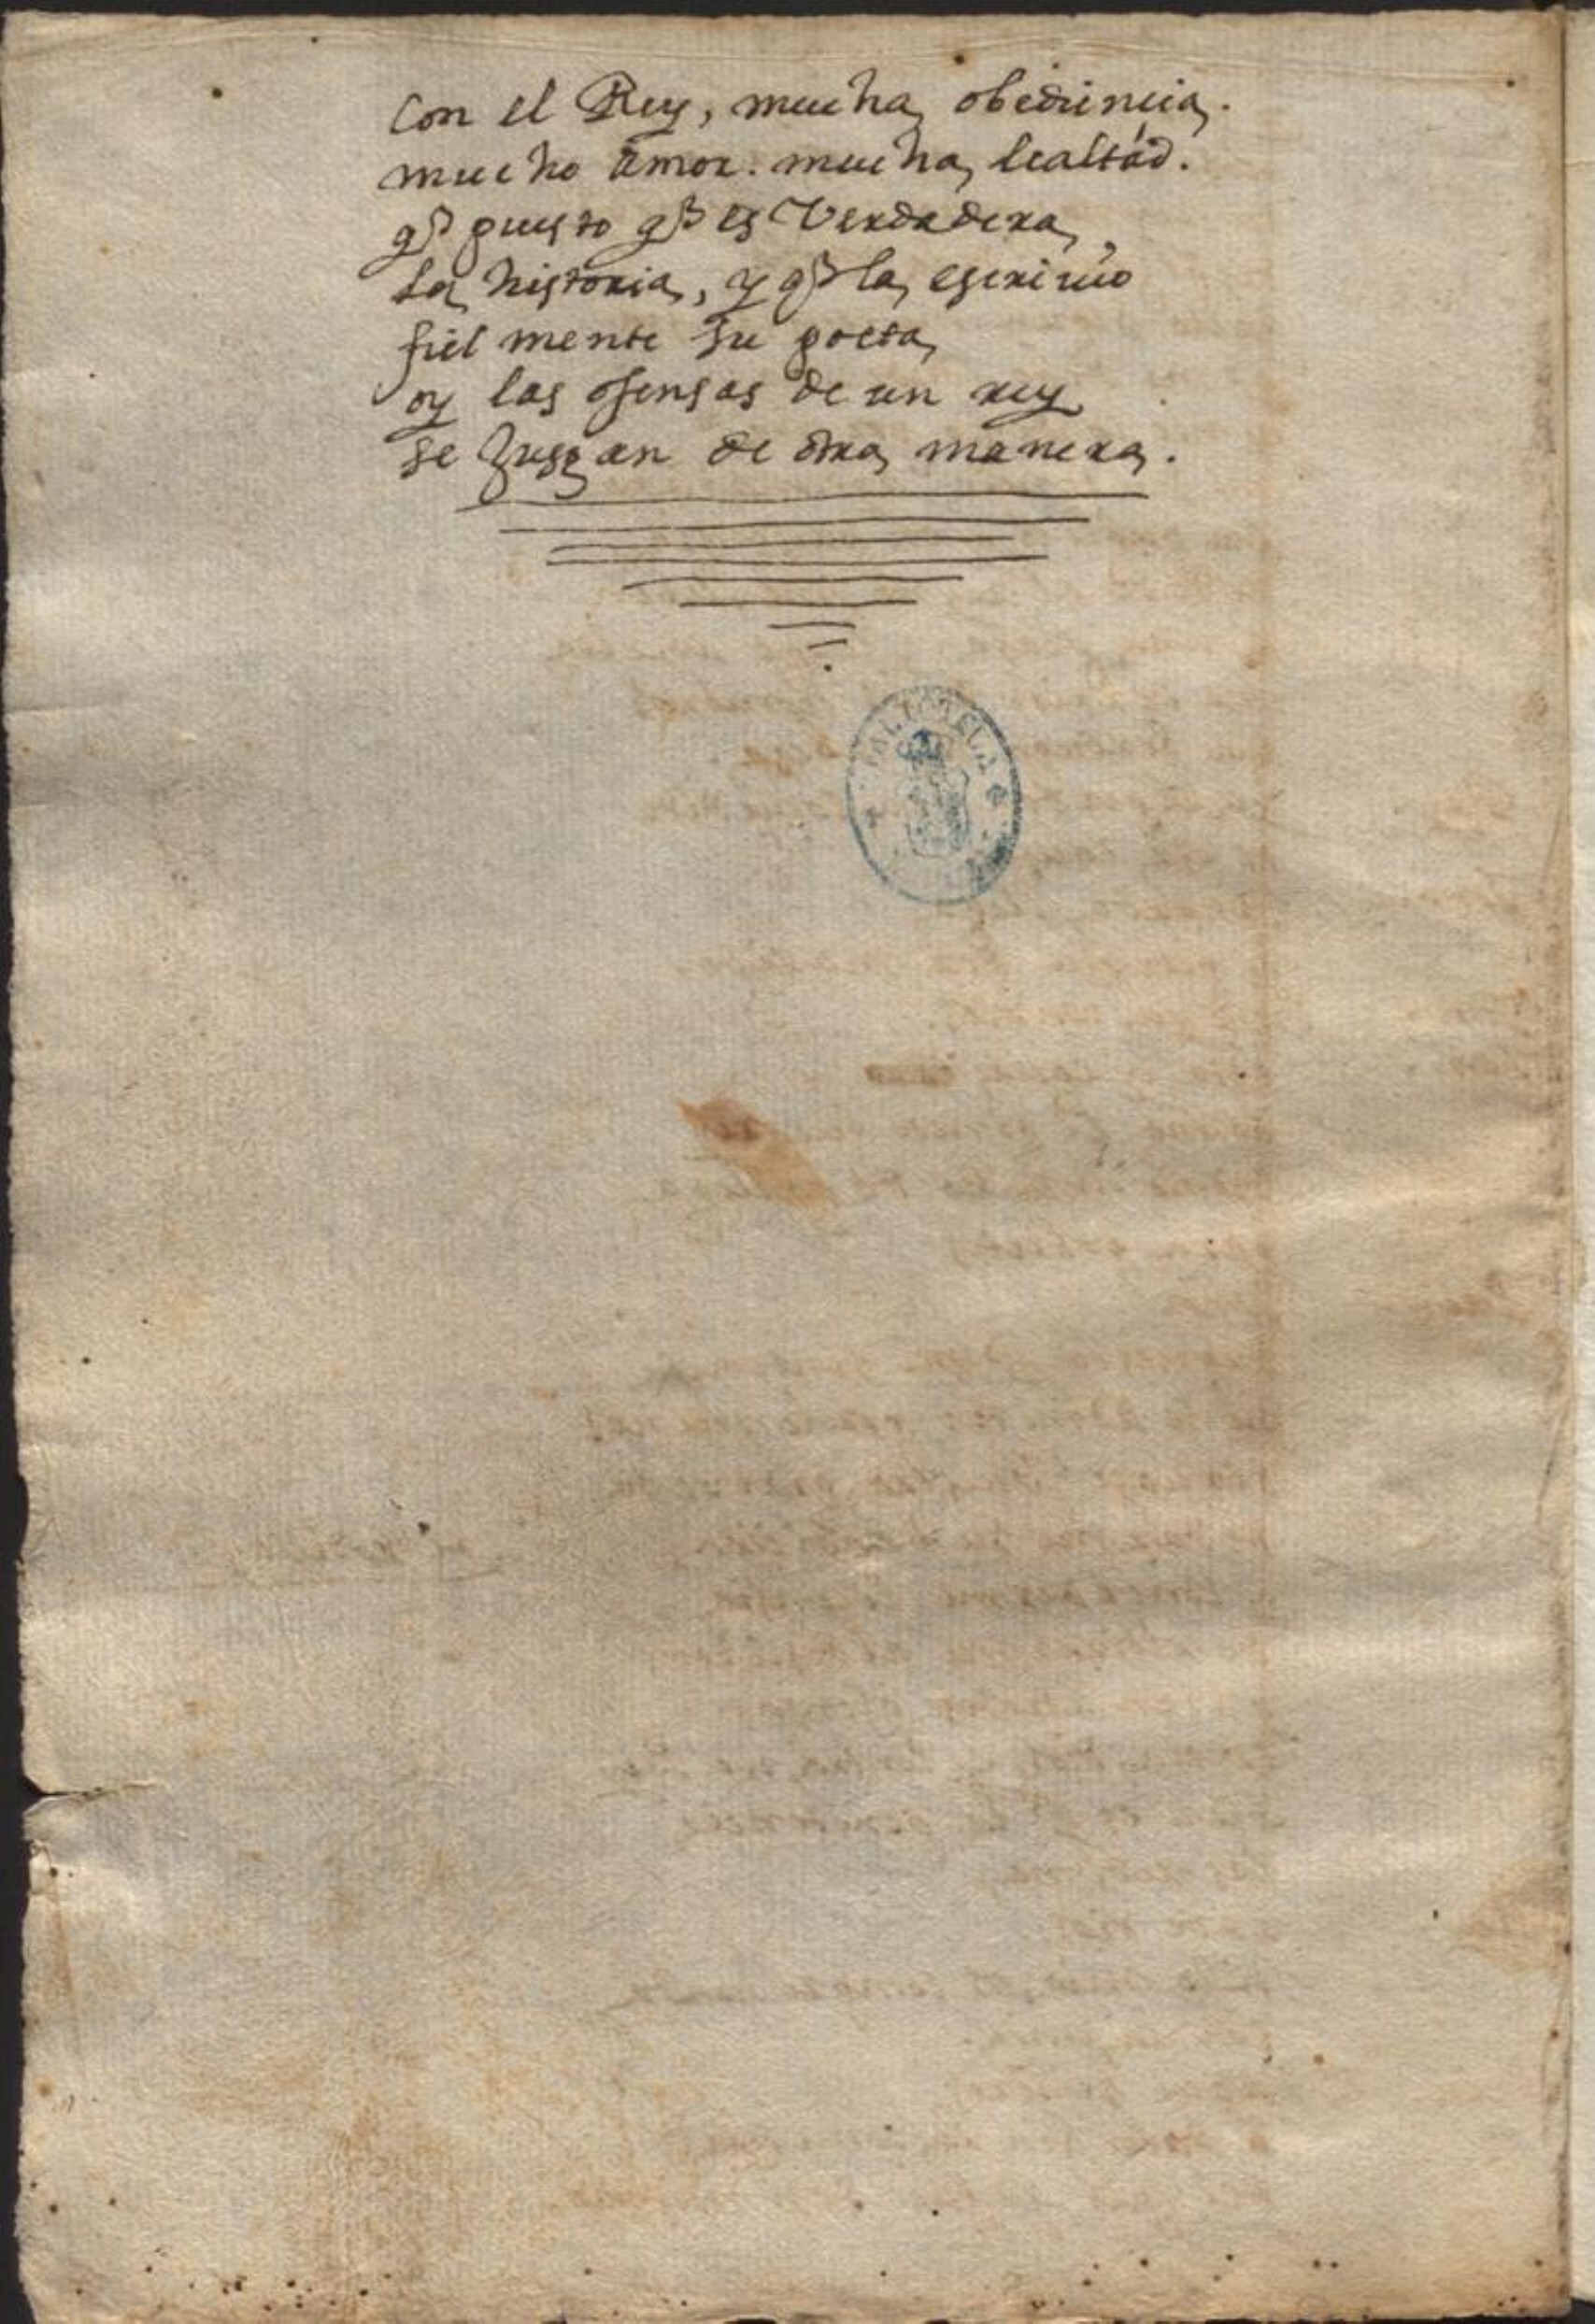 Con el Rey, mucha obediencia.
mucho amor. mucha lealtád.
q̃ puesto q̃ es Verdadera,
la historia, y q̃ la escriuio
fiel mente su poeta,
oy las ofensas de un rey
se Juzgan de otra manera.
BIBLIOTECA